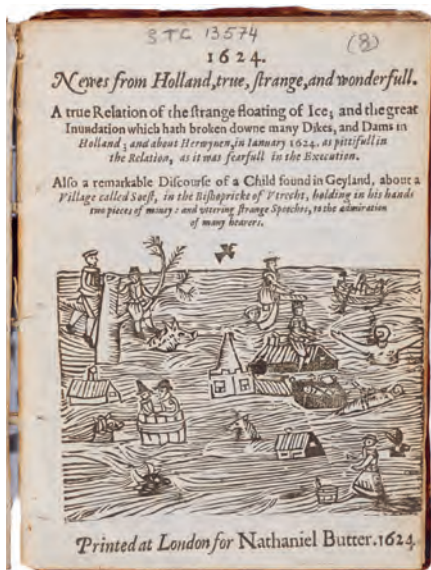 STC 13574
(8)
1624.
Newes from Holland, true, ſtrange, and wonderfull.
A true Relation of the ſtrange floating of Ice; and the great
Inundation which hath broken downe many Dikes, and Dams in
Holland; and about Herwynen, in Ianuary 1624. as pittifull in
the Relation, as it was fearfull in the Execution.
Alſo a remarkable Diſcourſe of a Child found in Geyland, about a
Village called Soeſt, in the Biſhopricke of Vtrecht, holding in his hands
two pieces of money: and vttering ſtrange Speeches, to the admiration
of many hearers.
Printed at London for Nathaniel Butter. 1624